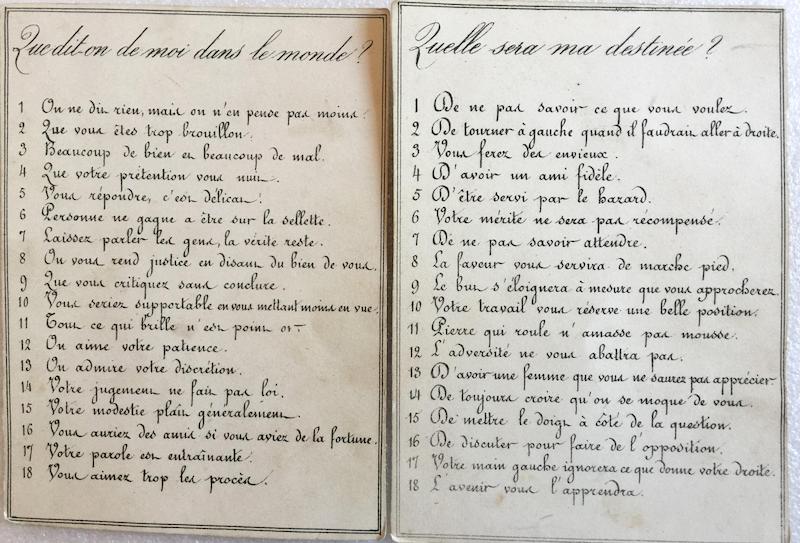 Que dit-on de moi dans le monde ?
1 On ne dit rien, mais on n'en pense pas moins.
2 Que vous êtes trop brouillon.
3 Beaucoup de bien et beaucoup de mal.
4 Que votre prétention vous nuit.
5 Vous répondre, c'est délicat !
6 Personne ne gagne a être sur la sellette.
7 Laissez parler les gens, la vérite reste.
8 On vous rend justice en disant du bien de vous.
9 Que vous critiquez sans conclure.
10 Vous seriez supportable en vous mettant moins en vue.
11 Tout ce qui brille n'est point or.
12 On aime votre patience.
13 On admire votre discrétion.
14 Votre jugement ne fait pas loi.
15 Votre modestie plait généralement.
16 Vous auriez des amis si vous aviez de la fortune.
17 Votre parole est entraînante.
18 Vous aimez trop les procès.
Quelle sera ma destinée ?
1 De ne pas savoir ce que vous voulez.
2 De tourner à gauche quand il faudrait aller à droite.
3 Vous ferez des envieux.
4 D'avoir un ami fidèle.
5 D'être servi par le hazard.
6 Votre mérite ne sera pas récompensé.
7 De ne pas savoir attendre.
8 La faveur vous servira de marche pied.
9 Le but s'éloignera à mesure que vous approcherez.
10 Votre travail vous réserve une belle position.
11 Pierre qui roule n'amasse pas mousse.
12 L'adversité ne vous abattra pas.
13 D'avoir une femme que vous ne saurez pas apprécier.
14 De toujours croire qu'on se moque de vous.
15 De mettre le doigt à côté de la question.
16 De discuter pour faire de l'opposition.
17 Votre main gauche ignorera ce que donne votre droite.
18 L'avenir vous l'apprendra.